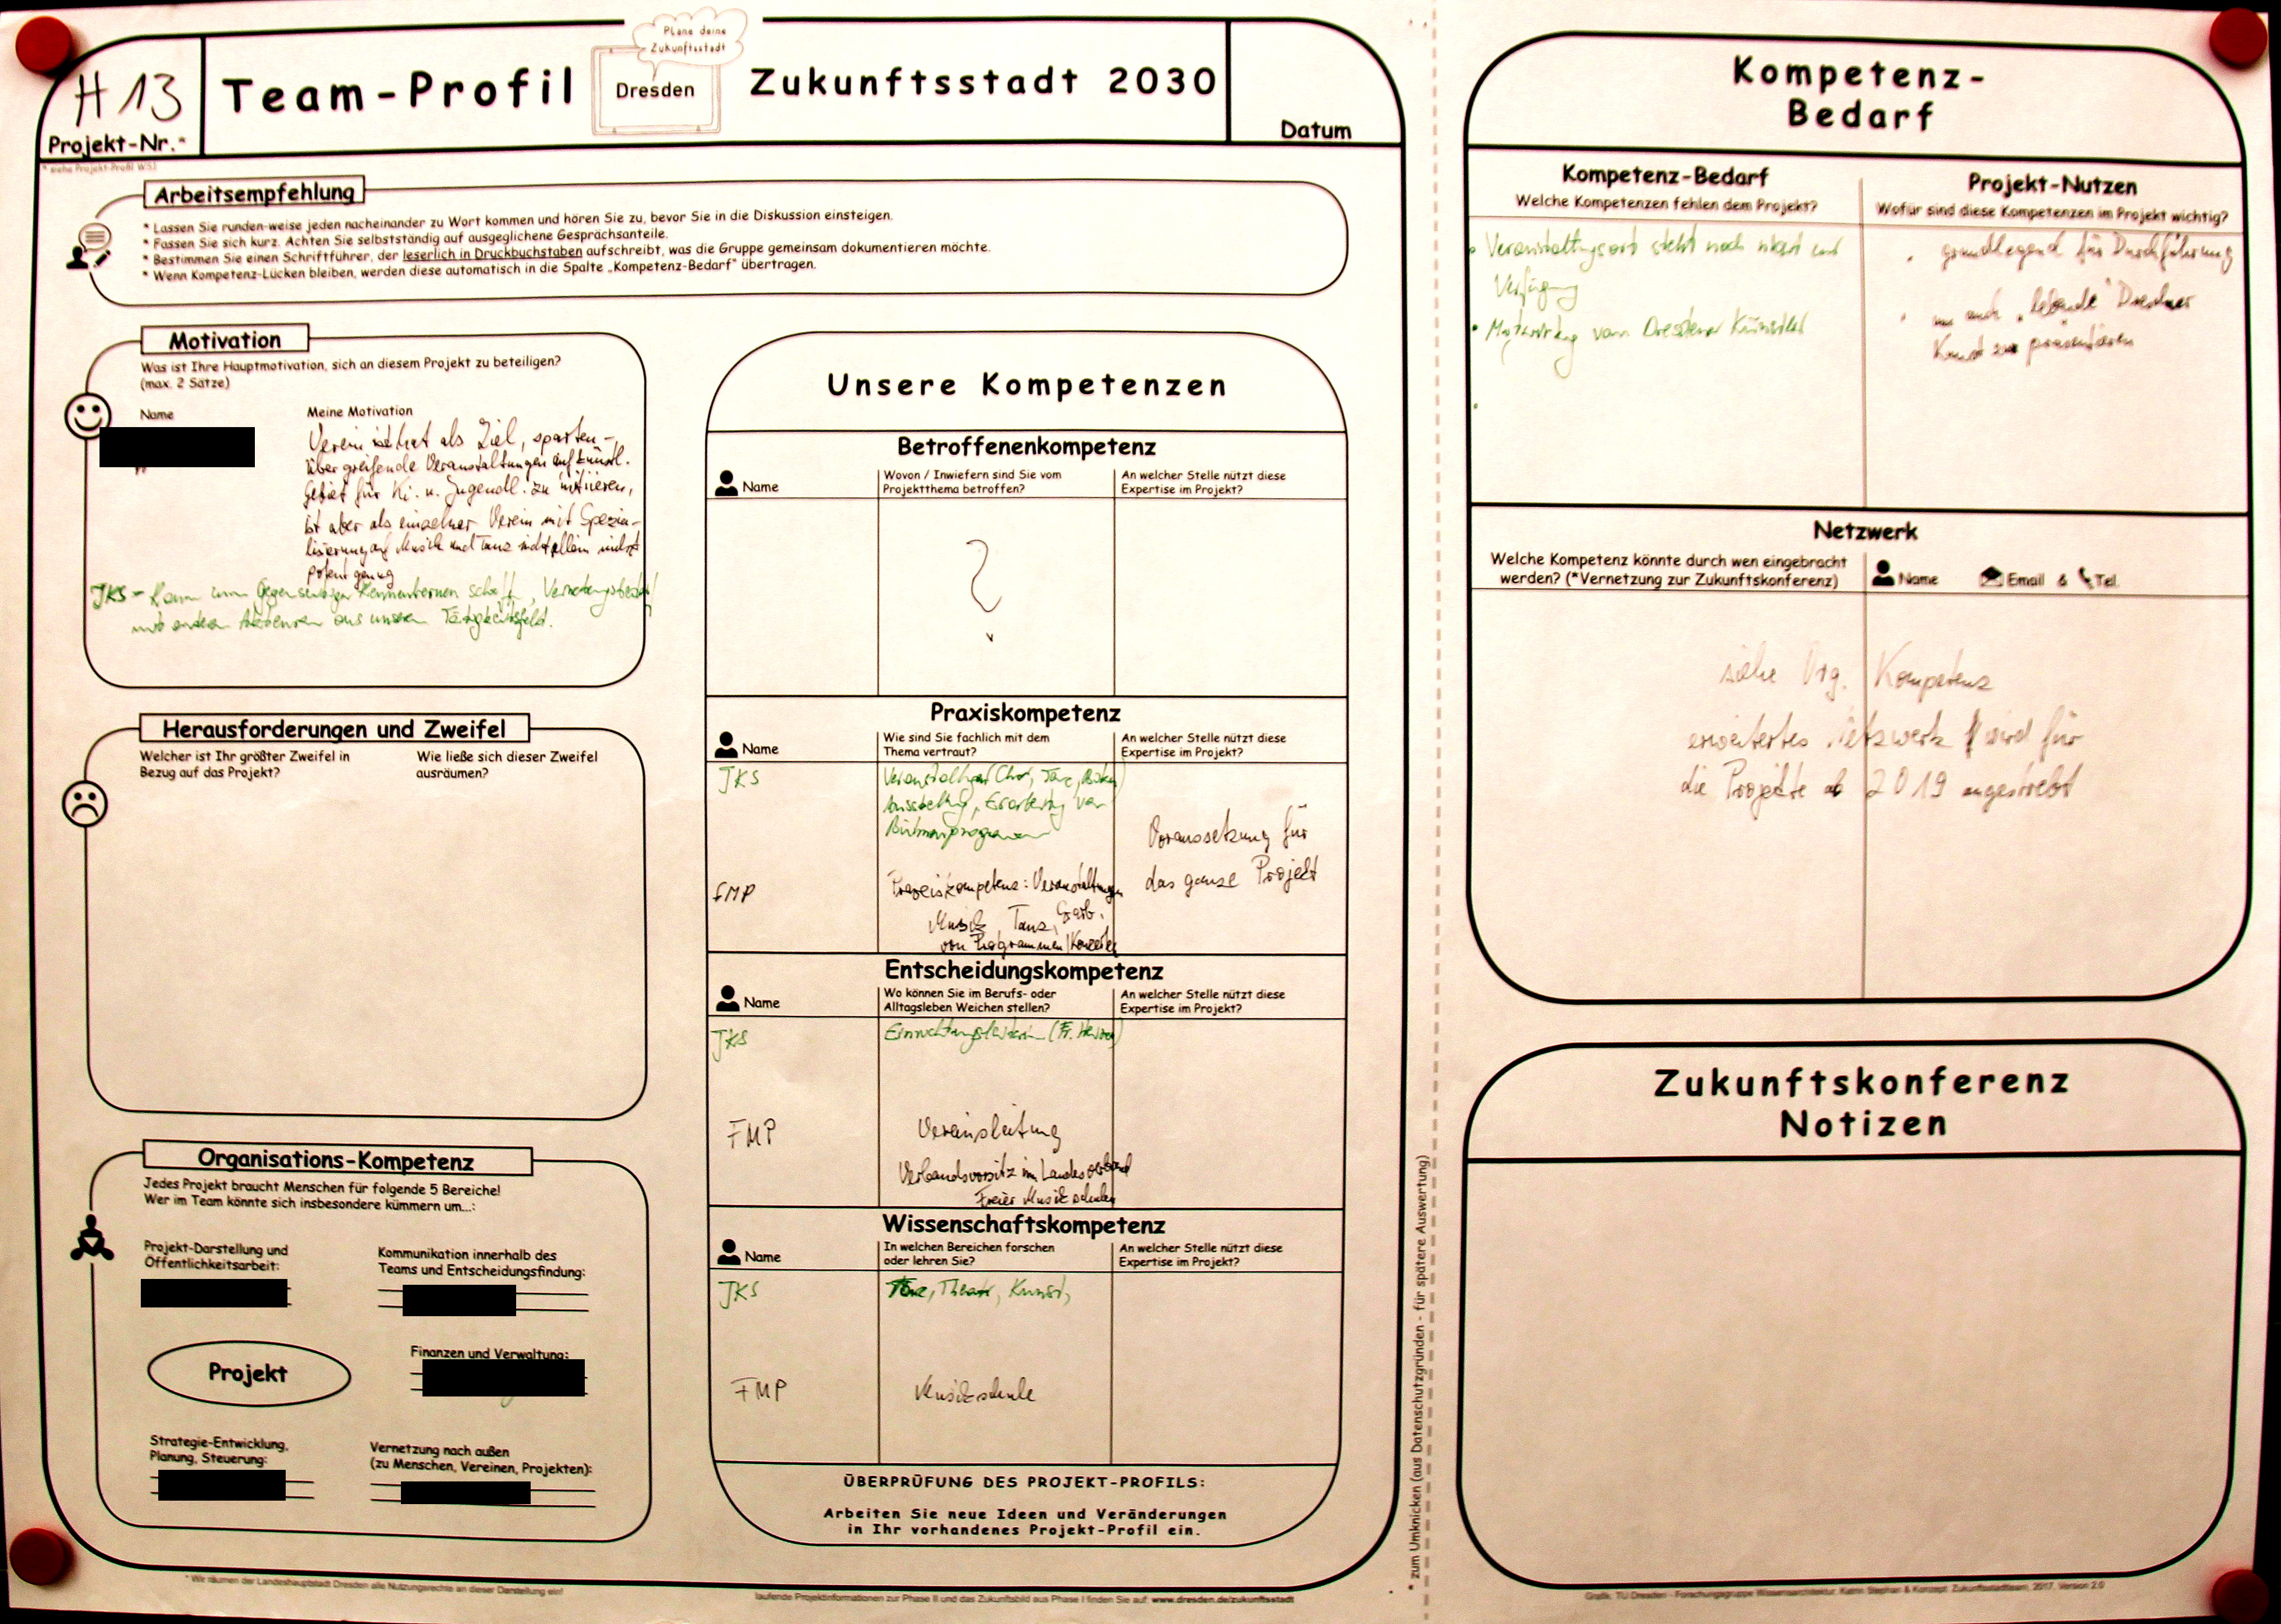 H 13
Projekt-Nr.*
* siehe Projekt-Profil WS1
Team-Profil
Plane deine
Zukunftsstadt
Dresden
Zukunftsstadt 2030
Datum
Arbeitsempfehlung
* Lassen Sie runden-weise jeden nacheinander zu Wort kommen und hören Sie zu, bevor Sie in die Diskussion einsteigen.
* Fassen Sie sich kurz. Achten Sie selbstständig auf ausgeglichene Gesprächsanteile.
* Bestimmen Sie einen Schriftführer, der leserlich in Druckbuchstaben aufschreibt, was die Gruppe gemeinsam dokumentieren möchte.
* Wenn Kompetenz-Lücken bleiben, werden diese automatisch in die Spalte „Kompetenz-Bedarf" übertragen.
Motivation
Was ist Ihre Hauptmotivation, sich an diesem Projekt zu beteiligen?
(max. 2 Sätze)
Name
Meine Motivation
Verein hat als Ziel, sparten-
übergreifende Veranstaltungen auf künstl.
Gebiet für Ki. u. Jugendl. zu initiieren,
ist aber als einzelner Verein mit Spezia-
lisierung auf Musik und Tanz nicht allein
potent genug
JKS - Raum zum gegenseitigen Kennenlernen schaff
mit anderen Akteuren aus unserem Tätigkeitsfeld.
Herausforderungen und Zweifel
Welcher ist Ihr größter Zweifel in
Bezug auf das Projekt?
Wie ließe sich dieser Zweifel
ausräumen?
Organisations-Kompetenz
Jedes Projekt braucht Menschen für folgende 5 Bereiche!
Wer im Team könnte sich insbesondere kümmern um...:
Projekt-Darstellung und
Öffentlichkeitsarbeit:
Kommunikation innerhalb des
Teams und Entscheidungsfindung:
Projekt
Finanzen und Verwaltung:
Strategie-Entwicklung,
Planung, Steuerung:
Vernetzung nach außen
(zu Menschen, Vereinen, Projekten):
Unsere Kompetenzen
Betroffenenkompetenz
Name
Wovon / Inwiefern sind Sie vom
Projektthema betroffen?
An welcher Stelle nützt diese
Expertise im Projekt?
?
Praxiskompetenz
Name
Wie sind Sie fachlich mit dem
Thema vertraut?
An welcher Stelle nützt diese
Expertise im Projekt?
JKS
Veranstaltungen (Chor, Tanz,
Ausstellung, Erarbeitung von
Bühnenprogrammen
FMP
Praxiskompetenz: Veranstaltungen
Musik, Tanz, Erarb.
von Programmen/Konzerten
Voraussetzung für
das ganze Projekt
Entscheidungskompetenz
Name
Wo können Sie im Berufs- oder
Alltagsleben Weichen stellen?
An welcher Stelle nützt diese
Expertise im Projekt?
JKS
Einrichtungsleiterin (Fr.
FMP
Vereinsleitung
Verbandsvorsitz im Landesverband
Freier Musikschulen
Wissenschaftskompetenz
Name
In welchen Bereichen forschen
oder lehren Sie?
An welcher Stelle nützt diese
Expertise im Projekt?
JKS
Tanz, Theater, Kunst,
FMP
Musikschule
ÜBERPRÜFUNG DES PROJEKT-PROFILS:
Arbeiten Sie neue Ideen und Veränderungen
in Ihr vorhandenes Projekt-Profil ein.
* Wir räumen der Landeshauptstadt Dresden alle Nutzungsrechte an dieser Darstellung ein!
laufende Projektinformationen zur Phase II und das Zukunftsbild aus Phase I finden Sie auf: www.dresden.de/zukunftsstadt
* zum Umknicken (aus Datenschutzgründen - für spätere Auswertung)
Kompetenz-
Bedarf
Kompetenz-Bedarf
Welche Kompetenzen fehlen dem Projekt?
Projekt-Nutzen
Wofür sind diese Kompetenzen im Projekt wichtig?
• Veranstaltungsort steht noch nicht zur
Verfügung
• Mitwirkung von Dresdener Künstler
•
• grundlegend für Durchführung
• um auch „lebende" Dresdner
Kunst zu präsentieren
Netzwerk
Welche Kompetenz könnte durch wen eingebracht
werden? (*Vernetzung zur Zukunftskonferenz)
Name
Email & Tel.
siehe Org. Kompetenz
erweitertes Netzwerk wird für
die Projekte ab 2019 angestrebt
Zukunftskonferenz
Notizen
Grafik: TU Dresden - Forschungsgruppe Wissensarchitektur, Katrin Stephan & Konzept: Zukunftsstadtteam, 2017, Version 2.0